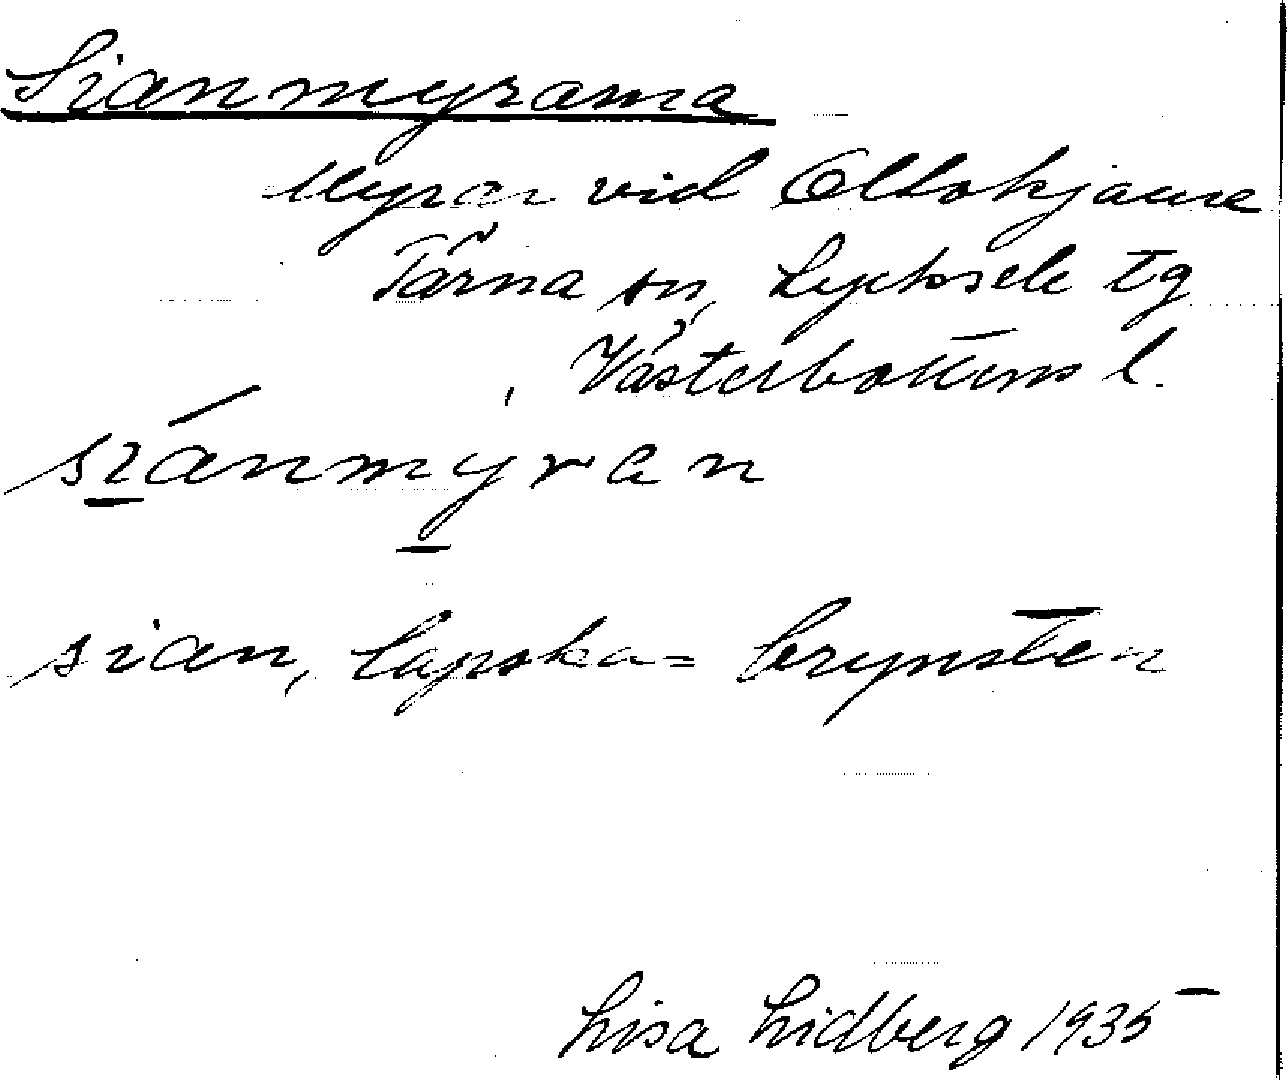 Sianmyrarna
Myrar vid Oltokjaure
Tärna sn, Lycksele tg
Västerbottens l.
siánmyran
sian, lapska = brynsten
Lisa Lidberg 1935